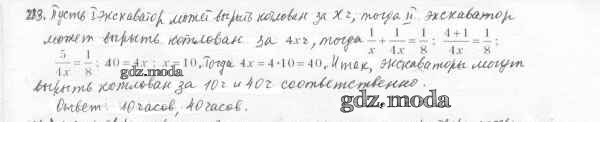 213. Пусть I экскаватор может вырыть котлован за x ч, тогда II экскаватор
может вырыть котлован за 4x ч, тогда 1/x + 1/4x = 1/8; (4+1)/4x = 1/8;
5/4x = 1/8; 40 = 4x; x = 10. Тогда 4x = 4·10 = 40. Итак, экскаваторы могут
gdz.moda
вырыть котлован за 10 ч и 40 ч соответственно.
gdz.moda
Ответ: 10 часов, 40 часов.